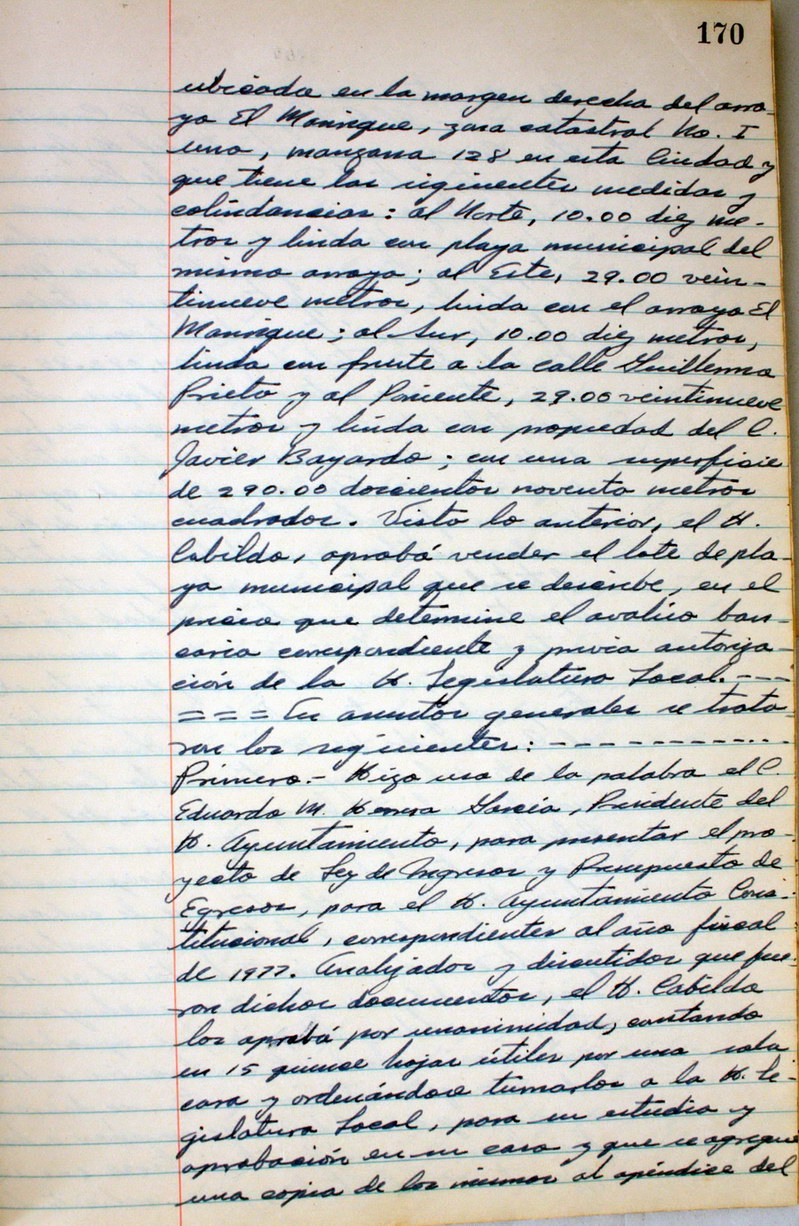 170
ubicada en la margen derecha del arro-
yo El Manrique, zona catastral No. I
uno, manzana 128 en esta Ciudad y
que tiene las siguientes medidas y
colindancias: al Norte, 10.00 diez me-
tros y linda con playa municipal del
mismo arroyo; al Este, 29.00 vein-
tinueve metros, linda con el arroyo El
Manrique; al Sur, 10.00 diez metros,
linda con frente a la calle Guillermo
Prieto y al Poniente, 29.00 veintinueve
metros y linda con propiedad del C.
Javier Bayardo; con una superficie
de 290.00 doscientos noventa metros
cuadrados. Visto lo anterior, el H.
Cabildo, aprobó vender el lote de pla-
ya municipal que se describe, en el
precio que determine el avalúo ban-
cario correspondiente y previa autoriza-
ción de la H. Legislatura Local. ---
=== En asuntos generales se trata-
ron los siguientes: ------------
Primero.- Hizo uso de la palabra el C.
Eduardo M. Herrera García, Presidente del
H. Ayuntamiento, para presentar el pro-
yecto de Ley de Ingresos y Presupuesto de
Egresos, para el H. Ayuntamiento Cons-
titucional, correspondientes al año fiscal
de 1977. Analizados y discutidos que fue-
ron dichos documentos, el H. Cabildo
los aprobó por unanimidad, contando
en 15 quince hojas útiles por una sola
cara y ordenándose turnarlos a la H. Le-
gislatura Local, para su estudio y
aprobación en su caso y que se agregue
una copia de los mismos al apéndice del